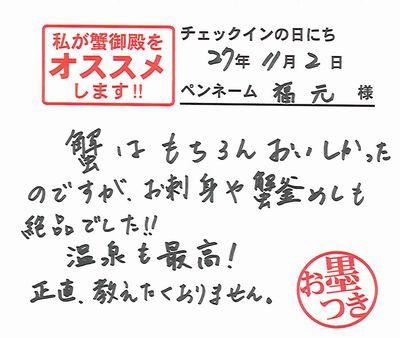 私が蟹御殿を
オススメ
します!!
チェックインの日にち
27年 11月 2日
ペンネーム 福元 様
蟹はもちろんおいしかった
のですが、お刺身や蟹釜めしも
絶品でした!!
温泉も最高!
正直、教えたくおりません。
お墨つき